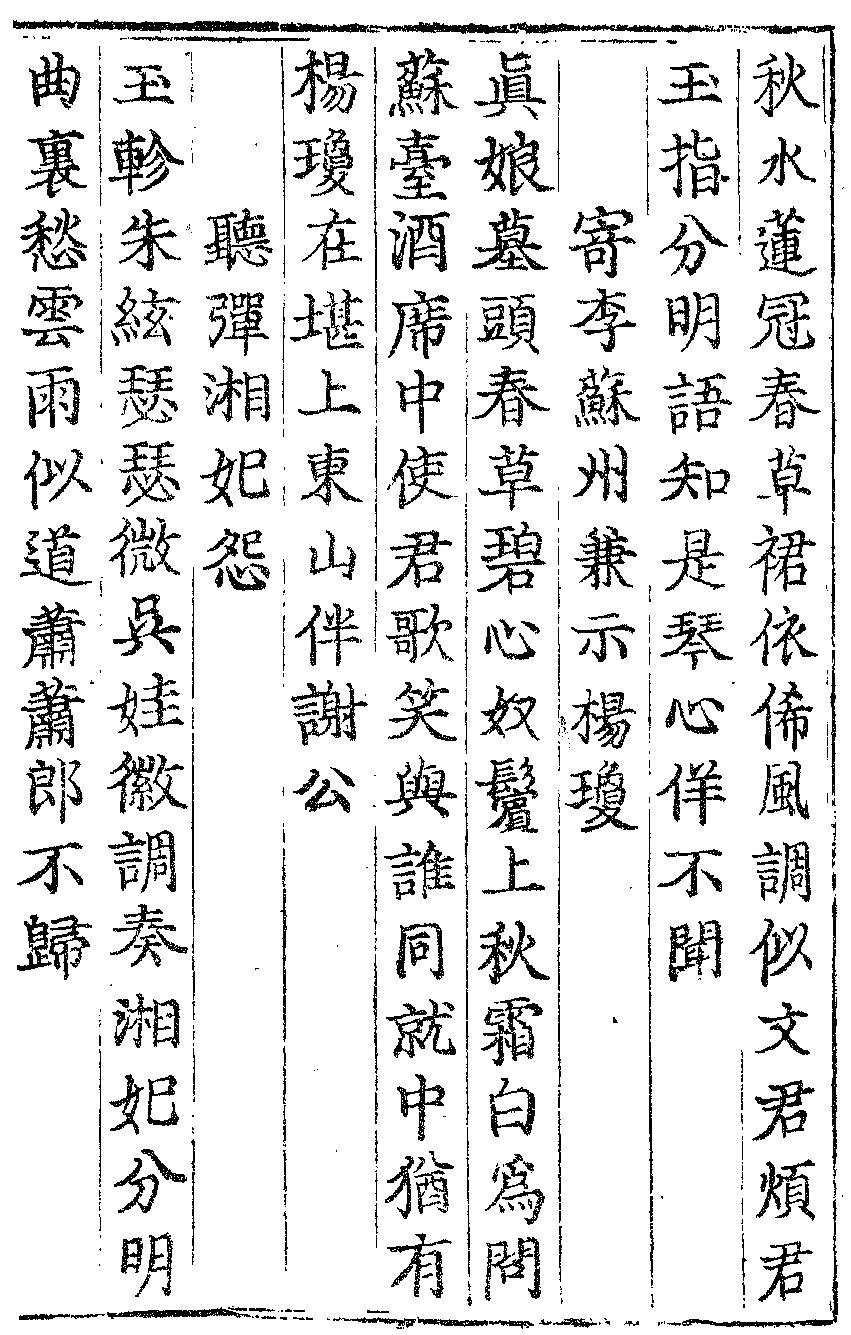 秋水蓮冠春草裙依俙風調似文君煩君
玉指分明語知是琴心佯不聞
寄李蘇州兼示楊瓊
眞娘墓頭春草碧心奴鬢上秋霜白爲問
蘇臺酒席中使君歌笑與誰同就中猶有
楊瓊在堪上東山伴謝公
聽彈湘妃怨
玉軫朱絃瑟瑟徽吳娃徽調奏湘妃分明
曲裏愁雲雨似道蕭蕭郎不歸